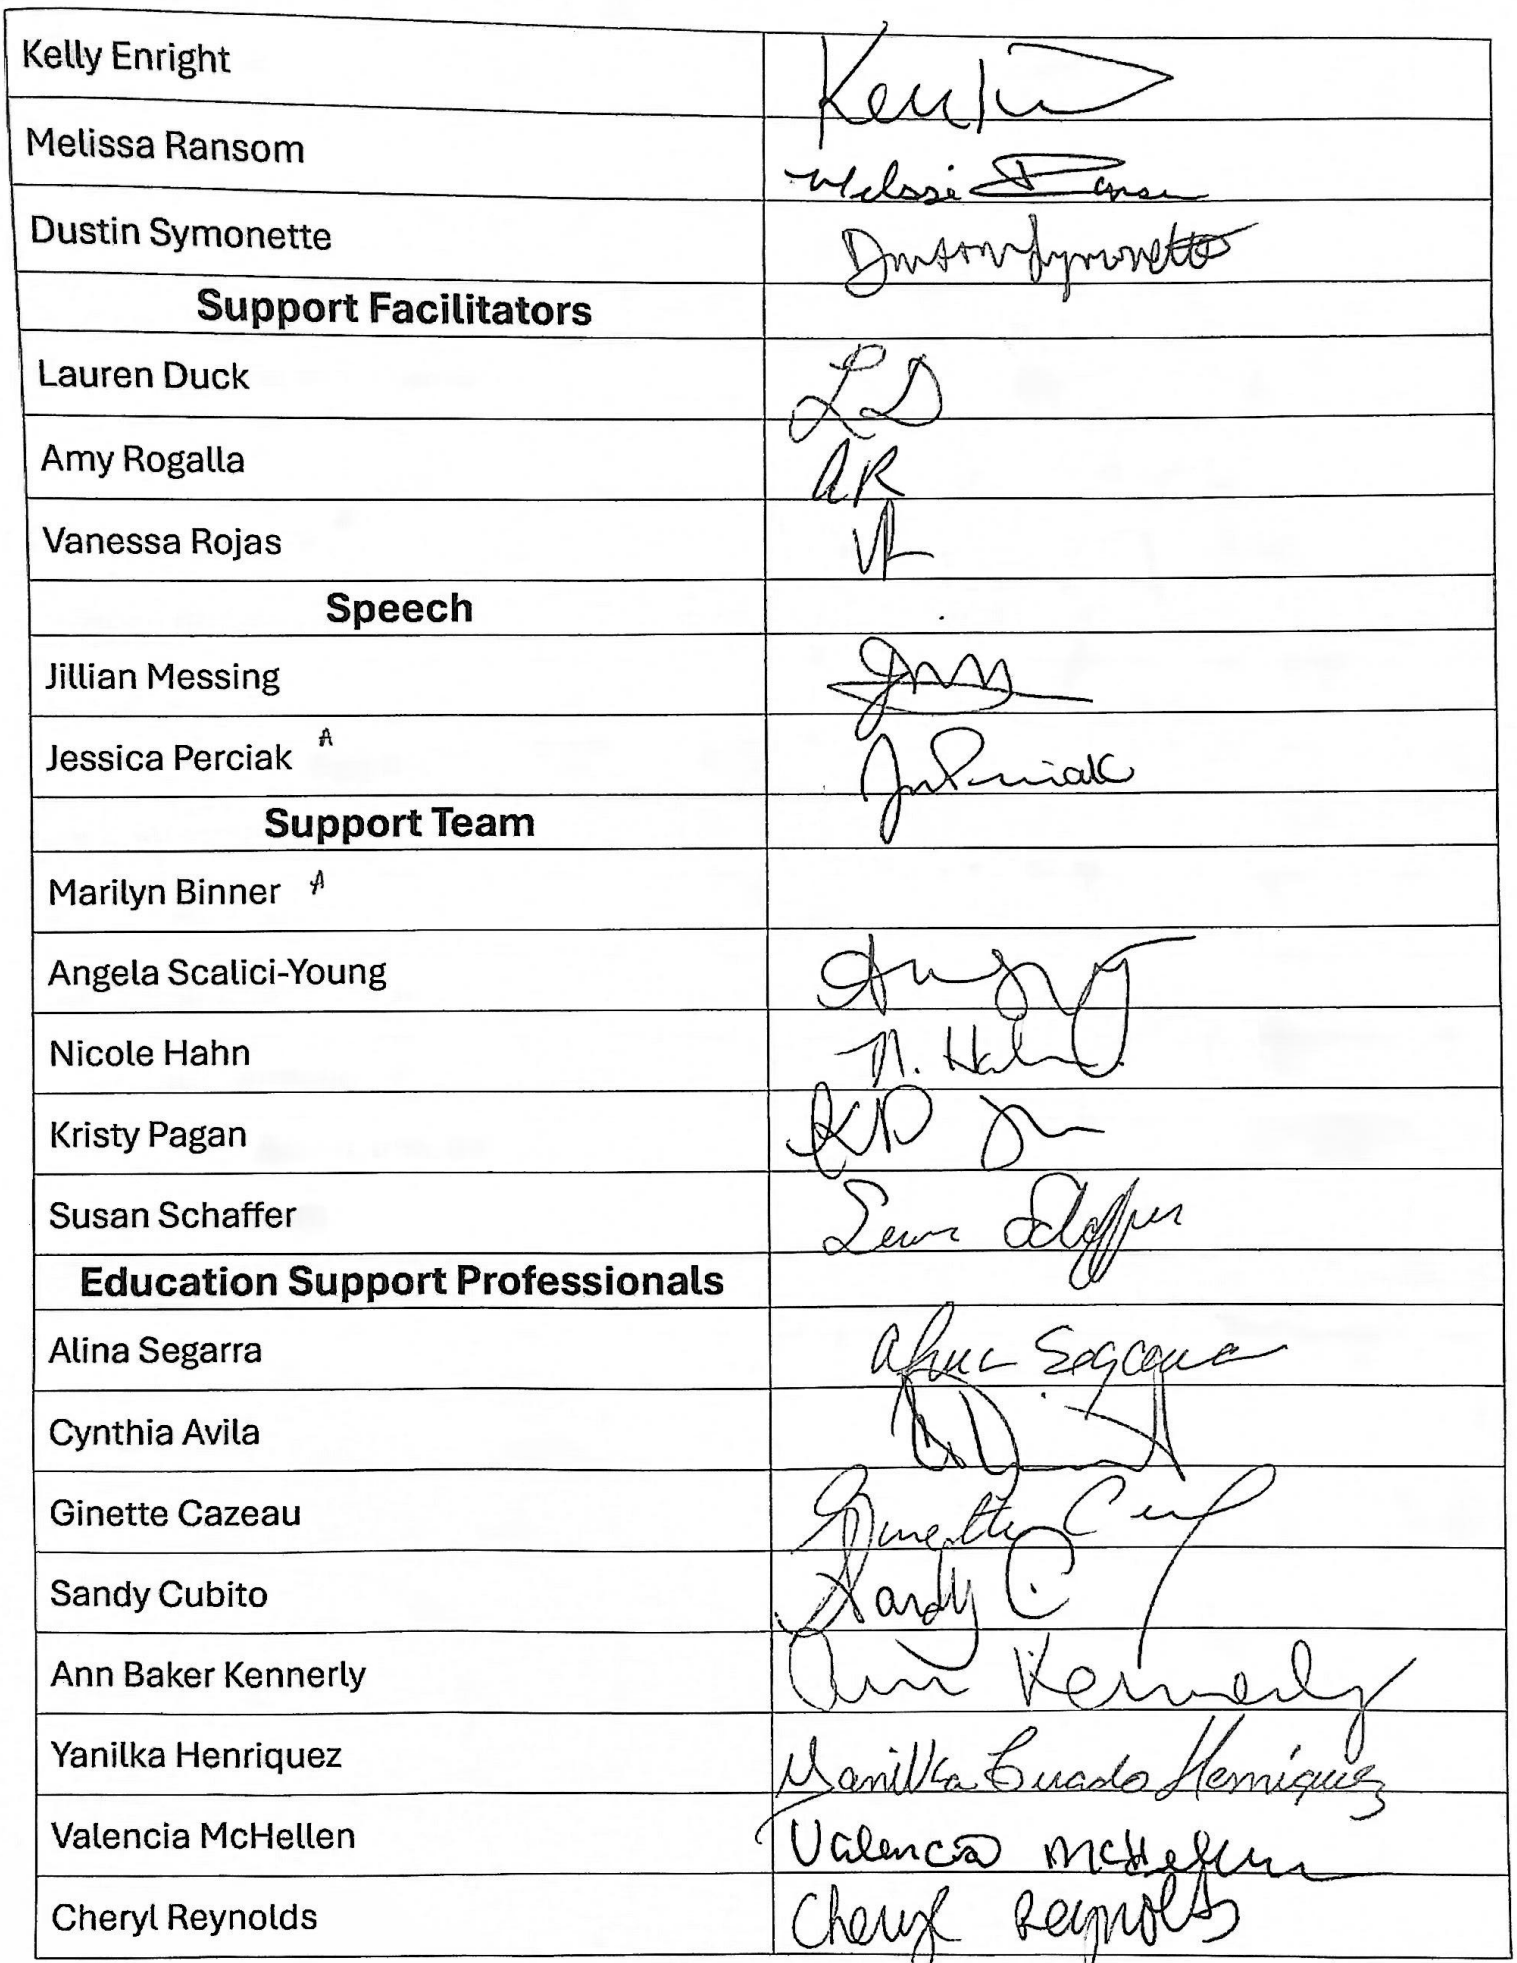 Kelly Enright
Melissa Ransom
Dustin Symonette Dustin Symonette
Support Facilitators
Lauren Duck LD
Amy Rogalla AR
Vanessa Rojas VR
Speech
Jillian Messing
Jessica Perciak A
Support Team
Marilyn Binner A
Angela Scalici-Young
Nicole Hahn N. Hahn
Kristy Pagan KP
Susan Schaffer Susan Schaffer
Education Support Professionals
Alina Segarra Alina Segarra
Cynthia Avila
Ginette Cazeau Ginette
Sandy Cubito Sandy C.
Ann Baker Kennerly Ann Kennerly
Yanilka Henriquez Yanilka Criado Henríquez
Valencia McHellen Valencia McHellen
Cheryl Reynolds Cheryl Reynolds